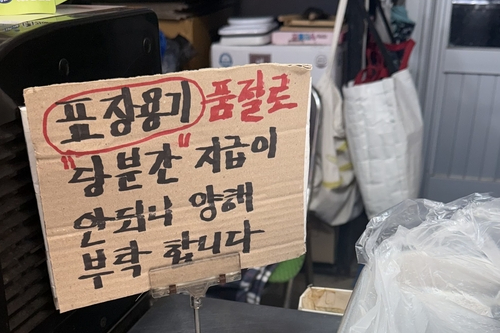 표장용기 품절로
"당분간" 지급이
안되니 양해
부탁 합니다